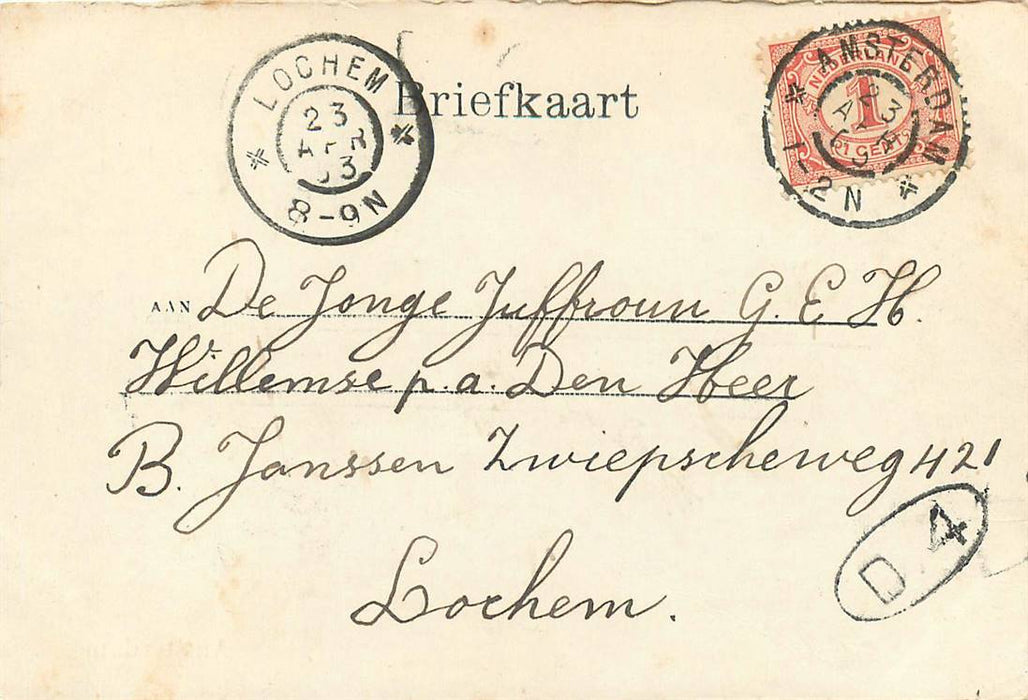 LOCHEM
23
APR
03
8-9N
Briefkaart
AMSTERDAM
23
APR
1-2N
NEDERLAND
1
CENT
AAN De Jonge Juffrouw G. E. H.
Willemse p.a. Den Heer
B. Janssen Zwiepscheweg 421
Lochem.
D 4